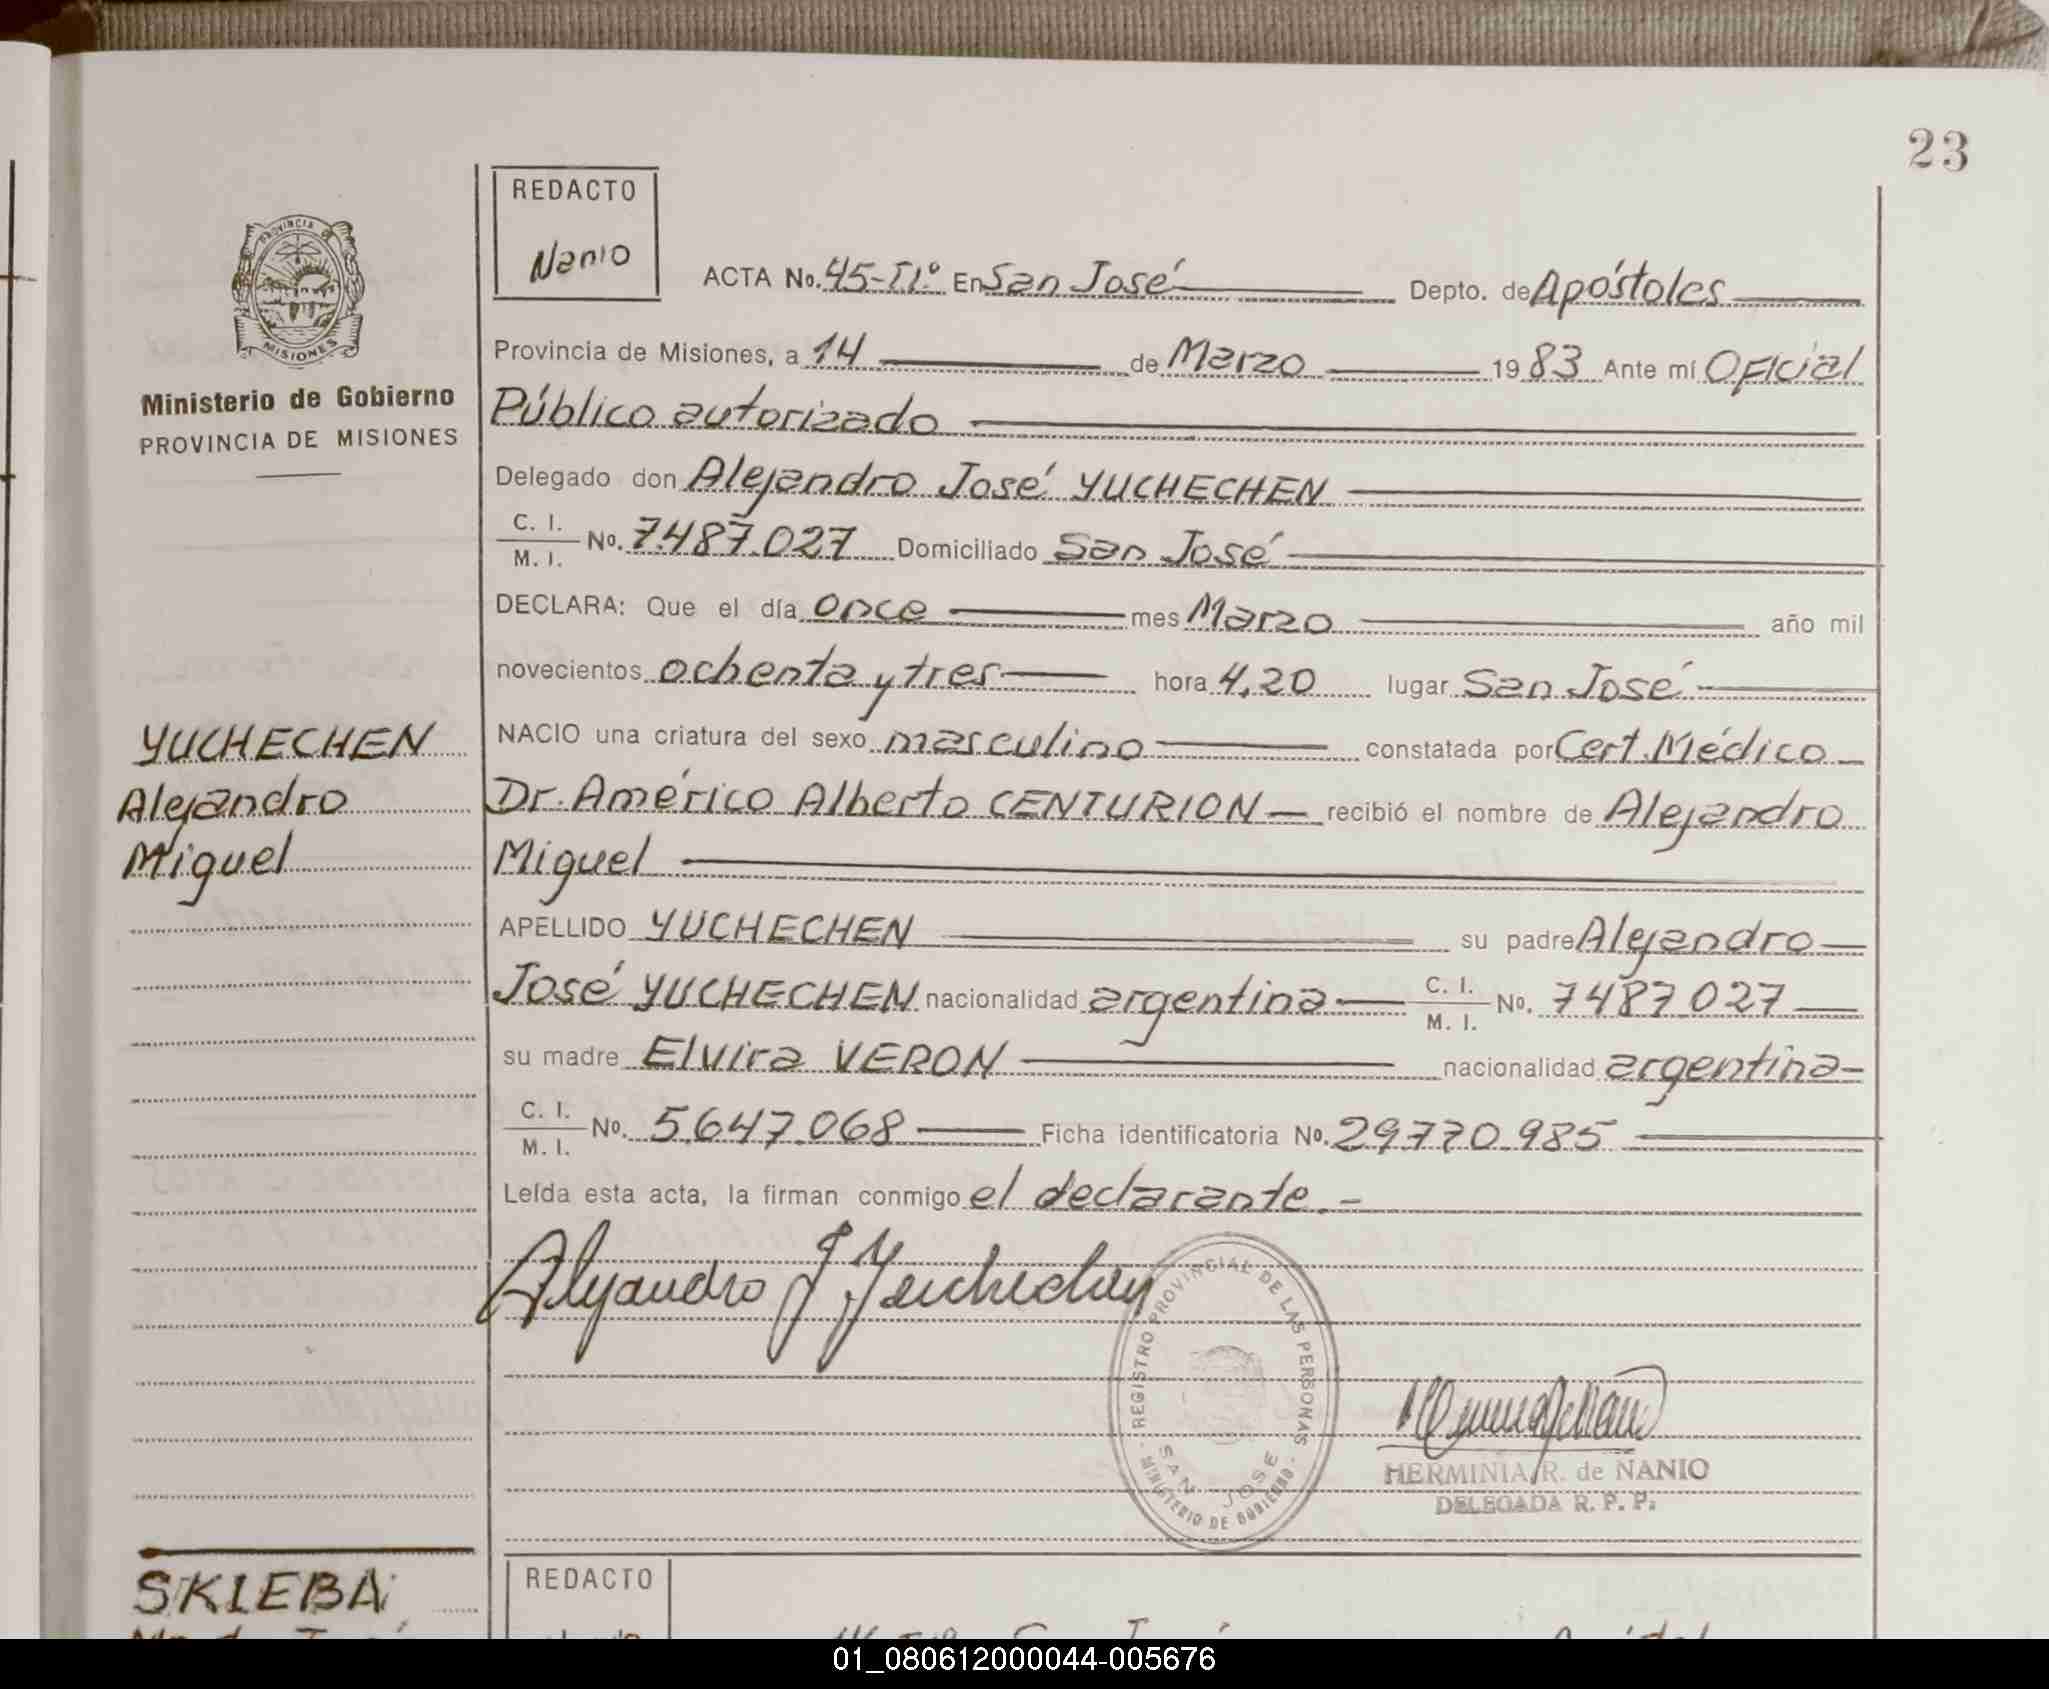 23
REDACTO
Nanio
PROVINCIA DE
MISIONES
Ministerio de Gobierno
PROVINCIA DE MISIONES
ACTA No. 45-TIº En San José Depto. de Apóstoles
Provincia de Misiones, a 14 de Marzo 1983 Ante mí Oficial
Público autorizado
Delegado don Alejandro José YUCHECHEN
C. I.
M. I. No. 7.487.027 Domiciliado San José
DECLARA: Que el día once mes Marzo año mil
novecientos ochenta y tres hora 4,20 lugar San José
NACIO una criatura del sexo masculino constatada por Cert. Médico
Dr. Américo Alberto CENTURION recibió el nombre de Alejandro
Miguel
APELLIDO YUCHECHEN su padre Alejandro
José YUCHECHEN nacionalidad argentina C. I. M. I. No. 7487.027
su madre Elvira VERON nacionalidad argentina
C. I.
M. I. No. 5.647.068 Ficha identificatoria No. 29.770.985
Leída esta acta, la firman conmigo el declarante.-
Alejandro J Yuchechen
YUCHECHEN
Alejandro
Miguel
REGISTRO PROVINCIAL DE LAS PERSONAS
MINISTERIO DE GOBIERNO
SAN JOSE
HERMINIA R. de NANIO
DELEGADA R. P. P.
SKIEBA
REDACTO
01_080612000044-005676